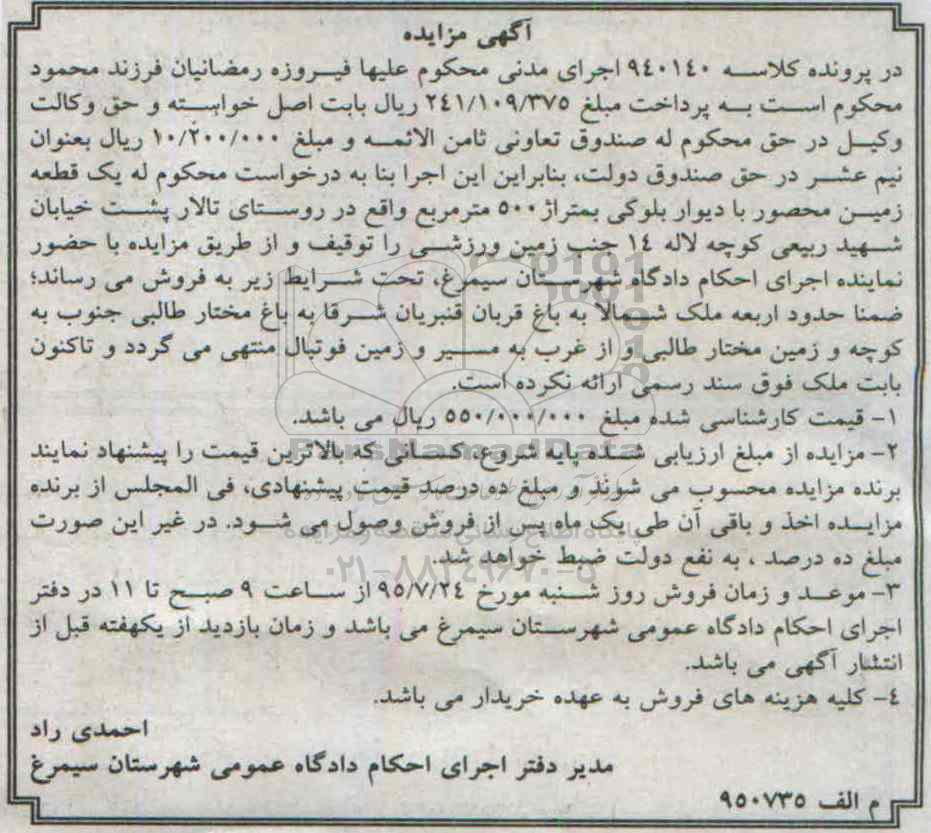 آگهی مزایده
در پرونده کلاسه ۹۴۰۱۴۰ اجرای مدنی محکوم علیها فیروزه رمضانیان فرزند محمود
محکوم است به پرداخت مبلغ ۲۴۱/۱۰۹/۳۷۵ ریال بابت اصل خواسته و حق وکالت
وکیل در حق محکوم له صندوق تعاونی ثامن الائمه و مبلغ ۱۰/۲۰۰/۰۰۰ ریال بعنوان
نیم عشر در حق صندوق دولت، بنابراین این اجرا بنا به درخواست محکوم له یک قطعه
زمین محصور با دیوار بلوکی بمتراژ ۵۰۰ مترمربع واقع در روستای تالار پشت خیابان
شهید ربیعی کوچه لاله ۱۴ جنب زمین ورزشی را توقیف و از طریق مزایده با حضور
نماینده اجرای احکام دادگاه شهرستان سیمرغ، تحت شرایط زیر به فروش می رساند؛
ضمنا حدود اربعه ملک شمالا به باغ قربان قنبریان شرقا به باغ مختار طالبی جنوب به
کوچه و زمین مختار طالبی و از غرب به مسیر و زمین فوتبال منتهی می گردد و تاکنون
بابت ملک فوق سند رسمی ارائه نکرده است.
۱- قیمت کارشناسی شده مبلغ ۵۵۰/۰۰۰/۰۰۰ ریال می باشد.
۲- مزایده از مبلغ ارزیابی شده پایه شروع، کسانی که بالاترین قیمت را پیشنهاد نمایند
برنده مزایده محسوب می شوند و مبلغ ده درصد قیمت پیشنهادی، فی المجلس از برنده
مزایده اخذ و باقی آن طی یک ماه پس از فروش وصول می شود. در غیر این صورت
مبلغ ده درصد ، به نفع دولت ضبط خواهد شد.
۳- موعد و زمان فروش روز شنبه مورخ ۹۵/۷/۲۴ از ساعت ۹ صبح تا ۱۱ در دفتر
اجرای احکام دادگاه عمومی شهرستان سیمرغ می باشد و زمان بازدید از یکهفته قبل از
انتشار آگهی می باشد.
۴- کلیه هزینه های فروش به عهده خریدار می باشد.
احمدی راد
مدیر دفتر اجرای احکام دادگاه عمومی شهرستان سیمرغ
م الف ۹۵۰۷۳۵
ParsNamadData